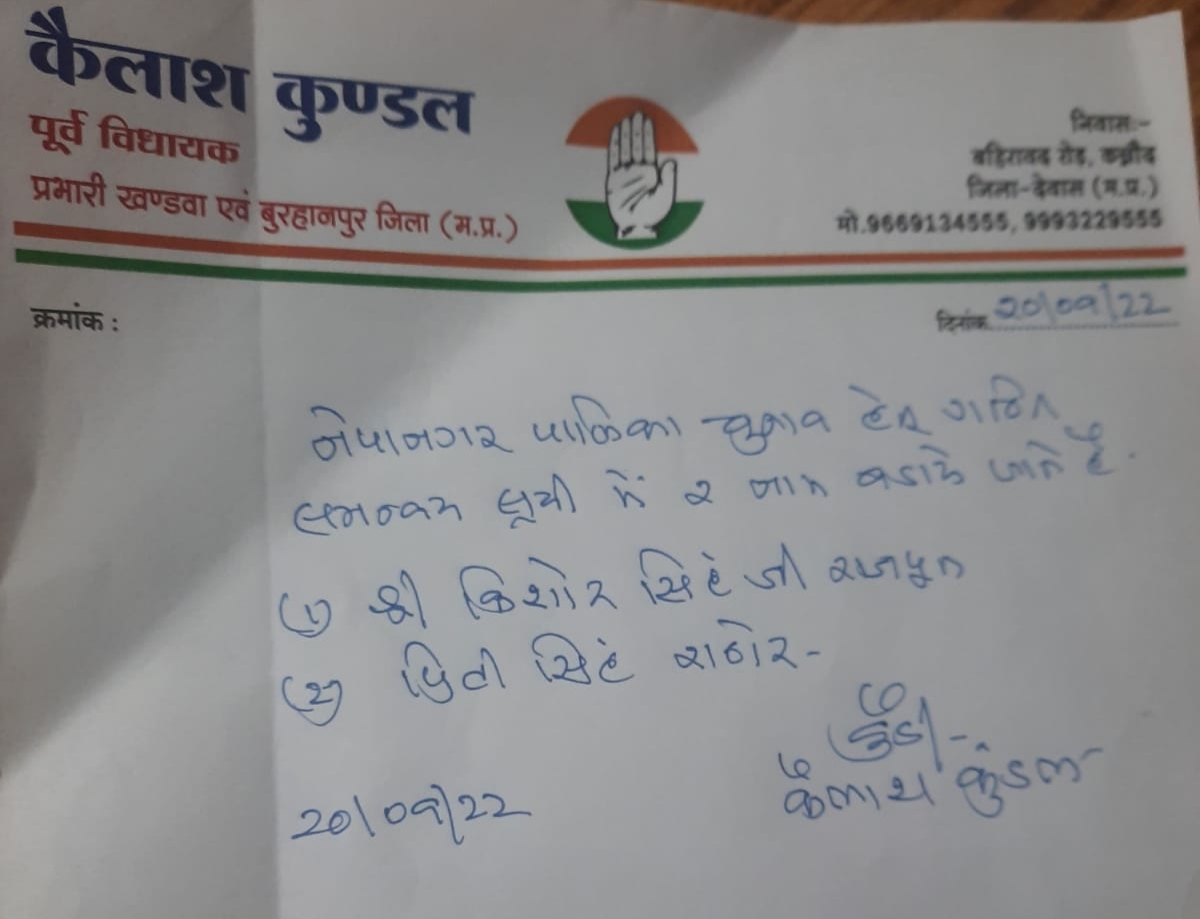 कैलाश कुण्डल
पूर्व विधायक
प्रभारी खण्डवा एवं बुरहानपुर जिला (म.प्र.)
निवास:-
बहिरावद रोड, कन्नौद
जिला-देवास (म.प्र.)
मो.9669134555, 9993229555
क्रमांक :
दिनांक 20/09/22
नेपानगर पालिका चुनाव हेतु गठित
समन्वय सूची में २ नाम बडाये जाते है.
(1) श्री किशोर सिंह जी राजपूत
(२) प्रिती सिंह राठोर-
कैलाश कुंडल
20/09/22